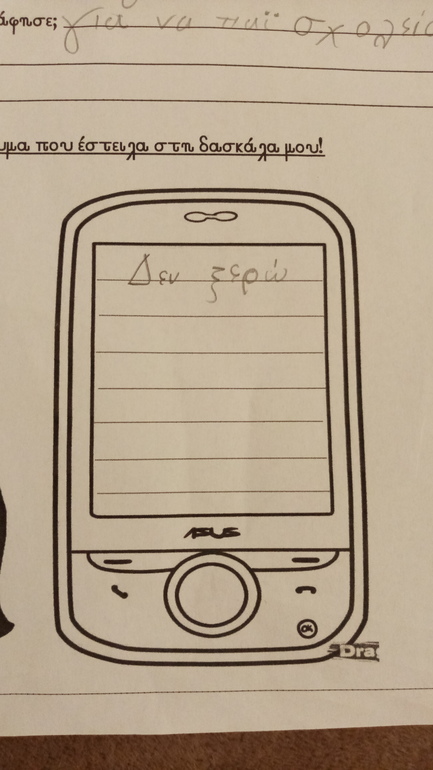 άφησε; για να παϊ σχολείο
υμα που έστειλα στη δασκάλα μου!
Δεν ξερώ
ASUS
OK
Dra